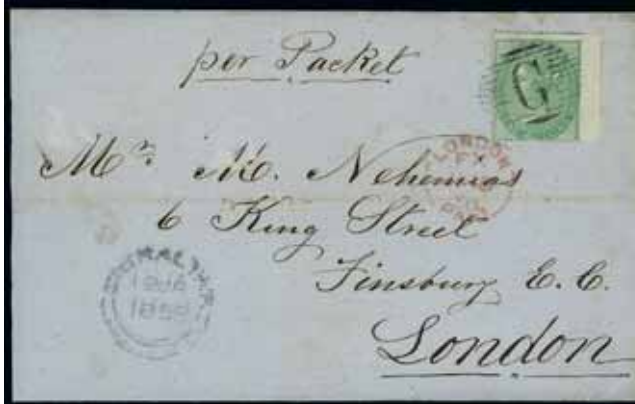 per Packet
G
LONDON
Mr. M. Nehemias
6 King Street
Finsbury E. C.
London
GIBRALTAR
1859